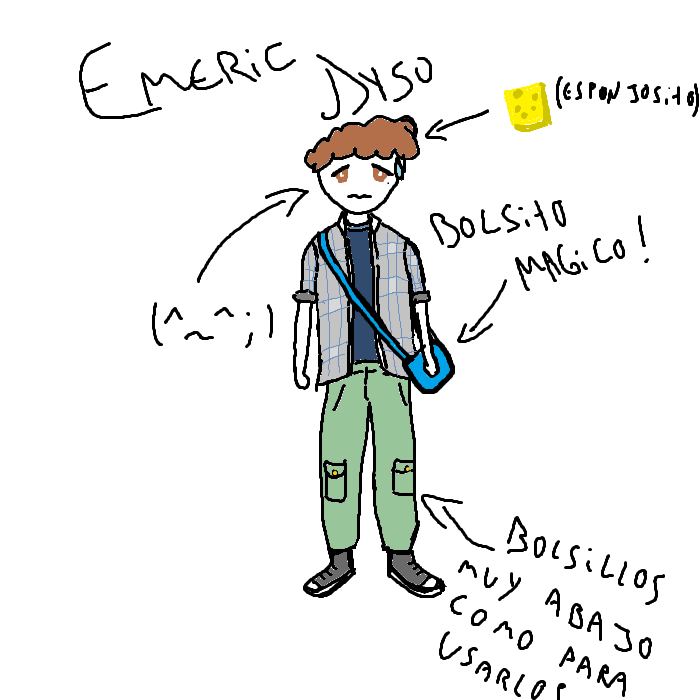 EMERIC DYSO
(ESPONJOSITO)
BOLSITO
MAGICO!
(^~^;)
BOLSILLOS
MUY ABAJO
COMO PARA
USARLOS